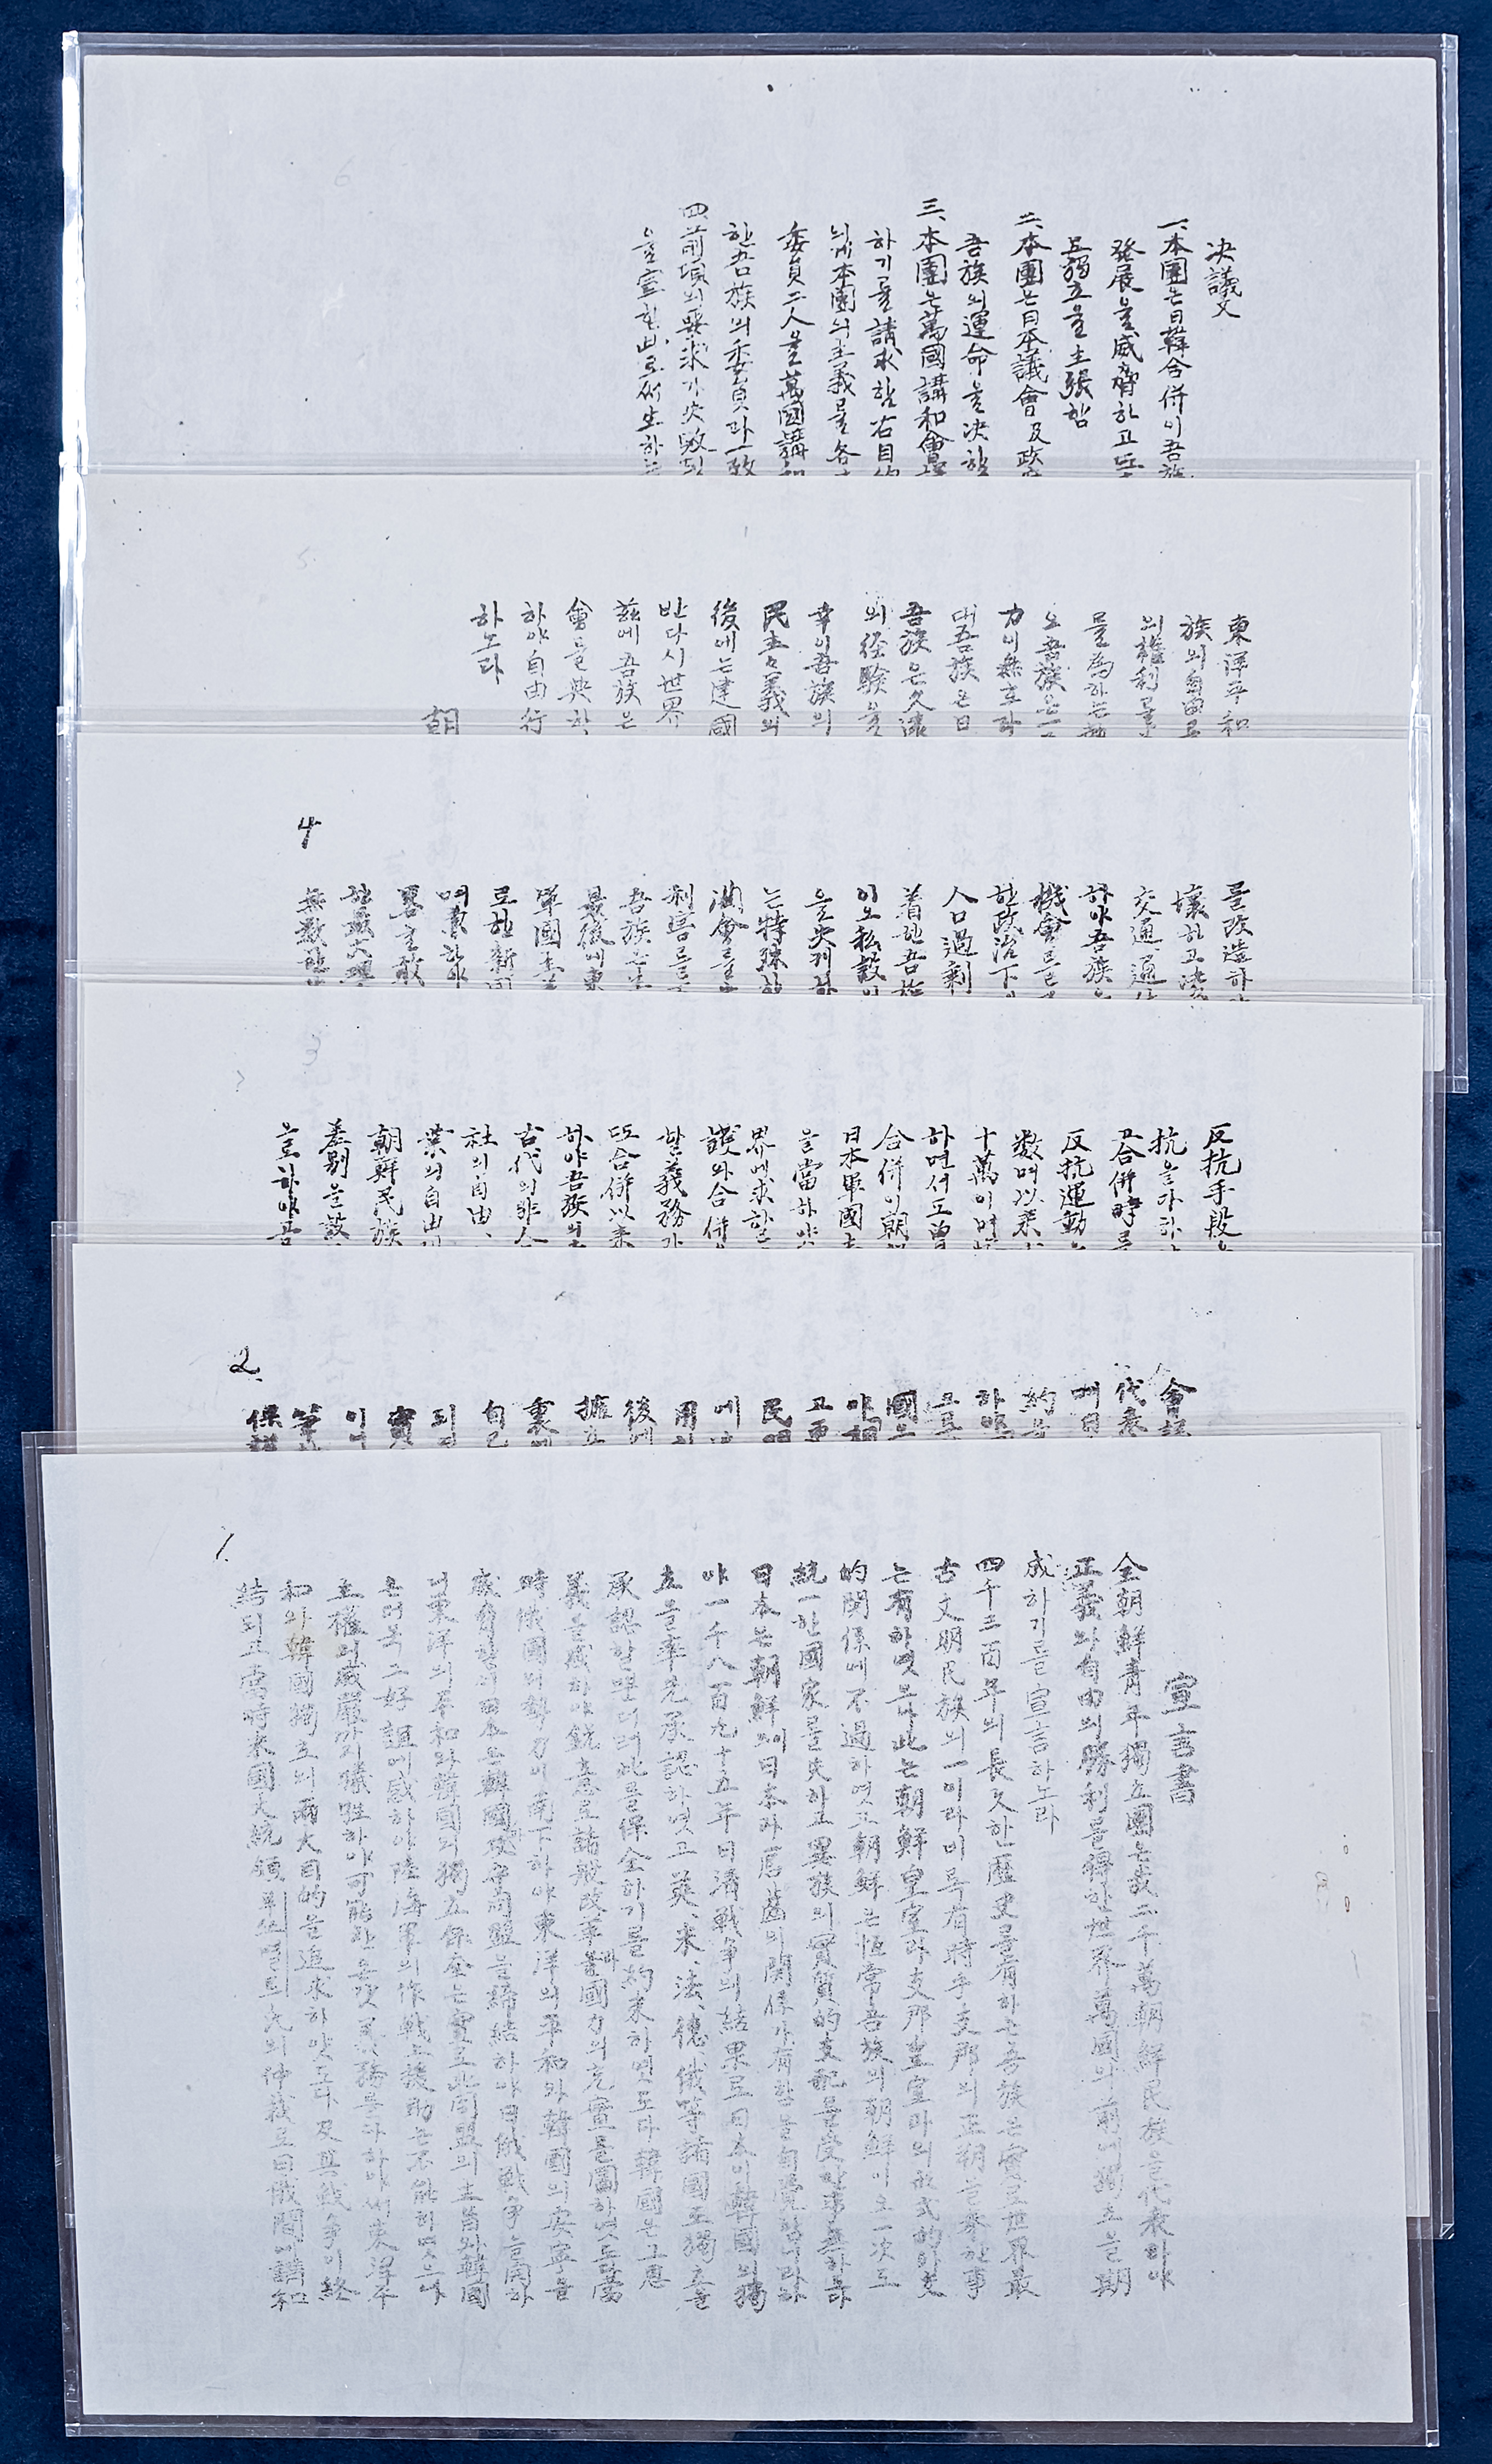 決議文
一、本團은日韓合併이吾族
發展을威脅하고또
로獨立을主張함
二、本團은日本議會及政府
吾族의運命을決할
三、本團은萬國講和會議
하기를請求함右目的
의게本團의主義를各
委員二人을萬國講和
한吾族의委員과一致
四、前項의要求가失敗될
을宣함此로써生하는
東洋平和
族의自由로
의權利를
를為하는
로吾族은一
力이無호라
대吾族은日
吾族은久遠
의経驗을
幸이吾族의
民主々義의
後에는建國
반다시世界
玆에吾族은
會를與하
하야自由行
하노라
朝
4
를改造하
壞하고決
交通、通信
하야吾族은
機會를
한政治下에
人口過剰
着한吾族
이오私設
을失케하
는特殊
濟會를
利害를
吾族은
最後에東
軍國主
로한新
며衷하
署主敵
한最大
無數한
3
反抗手段
抗을다하
고合併時로
反抗運動
數며以来
十萬이며
하면서도曽
合併이朝
日本軍國主
을當하얏
界에求할
議와合併
할義務가
또合併以来
하야吾族의
古代의非人
社의自由、
業의自由
朝鮮民族
差別을設
을하야公
2.
會議
代表
에日
約
하야
고
國으
야朝
고更
民
에
用
後에
擁立
裏에
自己
되
實
이
筆
保護
1.
宣言書
全朝鮮青年獨立團은我二千萬朝鮮民族을代表하야
正義와自由의勝利를得한世界萬國의前에獨立을期
成하기를宣言하노라
四千三百年의長久한歷史를有하는吾族은實로世界最
古文明民族의一이라비록有時乎支那의正朔을奉한事
는有하엿으나此는朝鮮皇室과支那皇室과의形式的外交
的関係에不過하엿고朝鮮은恒常吾族의朝鮮이오一次도
統一한國家를失하고異族의實質的支配를受한事無하도다
日本은朝鮮이日本과唇齒의関係가有함을自覺함이라하
야一千八百九十五年日清戦争의結果로日本이韓國의獨
立을率先承認하엿고英、米、法、德、俄等諸國도獨立을
承認할뿐더러此를保全하기를約束하엿도다韓國은그恩
義을感하야銳意로諸般改革과國力의充實를圖하엿도다當
時俄國의勢力이南下하야東洋의平和와韓國의安寧을
威脅함에日本은韓國과攻守同盟을締結하야日俄戦争을開하
니東洋의平和와韓國의獨立保全은實로此同盟의主旨와韓國
은더욱그好誼에感하야陸海軍의作戦上援助는不能하엿으나
主權의威嚴까지犠牲하야可能한온갓義務를다하야써東洋平
和와韓國獨立의兩大目的을追求하얏도다及其戦争이終
結되고當時米國大統領루쓰벨트氏의仲裁로日俄間에講和